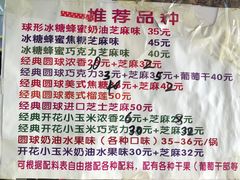 推荐品种
球形冰糖蜂蜜奶油芝麻味 35元
冰糖蜂蜜焦糖芝麻味 45元
冰糖蜂蜜芝麻味 40元
经典圆球浓香20元+芝麻
经典圆球巧克力33元+芝麻35元+葡萄干40元
经典圆球美式焦糖 40元
经典圆球泰式榴莲50元
经典圆球进口芝士50元
经典开花小玉米浓香 元+芝麻28元
经典开花小玉米巧克力30元+芝麻32元
圆球奶油水果味(各种口味)35-36元/锅
开花小玉米奶油水果味30元+芝麻32元
可根据配料表自由搭配各种配料,配有各种干果(葡萄干部等